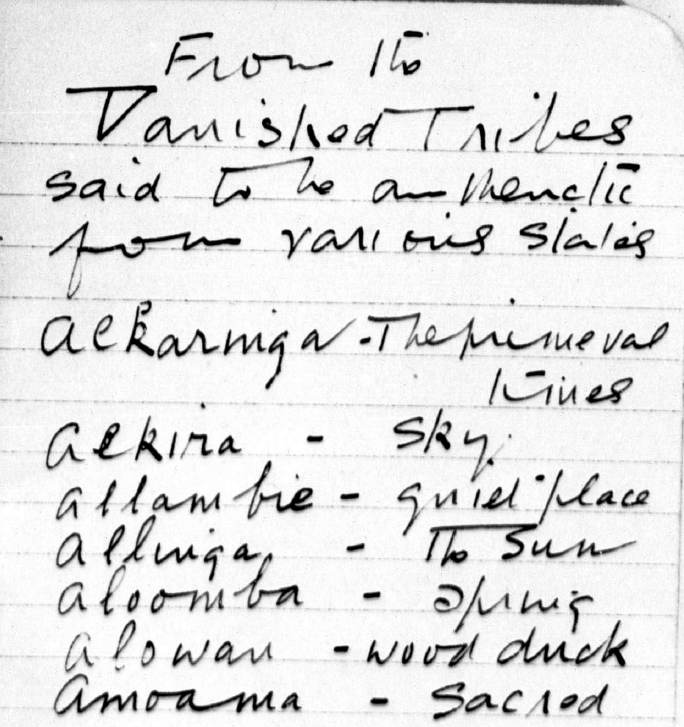 From the
Vanished Tribes
said to be authenctic
from various states
Alkarniga - The primeval
times
Alkira - Sky.
Allambie - quiet place
Allinga - the Sun
Aloomba - Spring
Alowan - wood duck
Amoama - Sacred